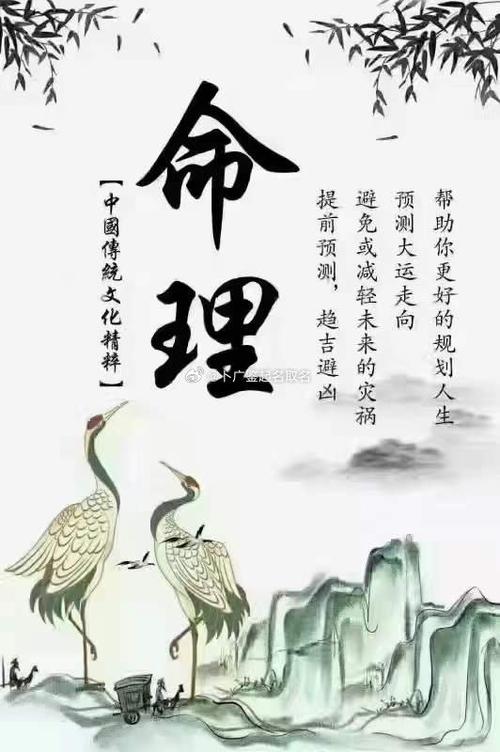 帮助你更好的规划人生
预测大运走向
避免或减轻未来的灾祸
提前预测，趋吉避凶
命理
【中國傳統文化精粹】
@卜广鉴起名取名